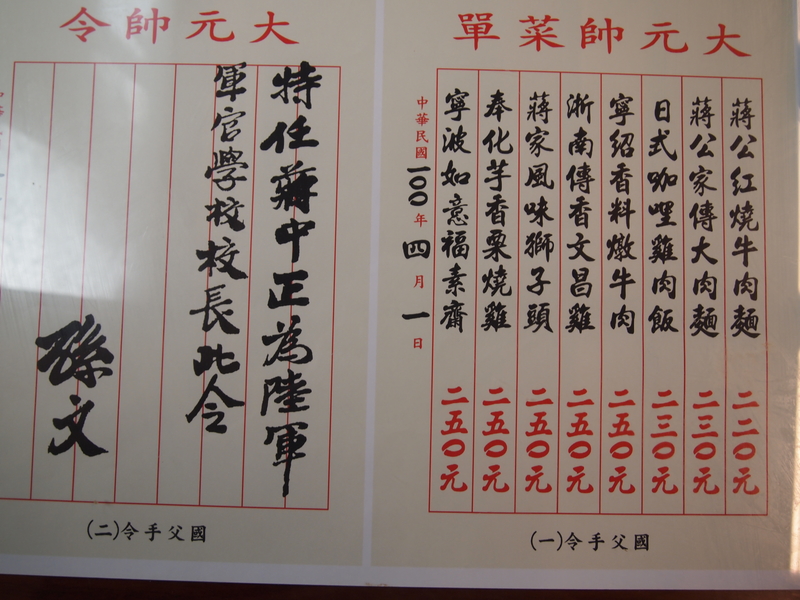 大元帥菜單
蔣公紅燒牛肉麵 二二〇元
蔣公家傳大肉麵 二三〇元
日式咖哩雞肉飯 二三〇元
寧紹香料燉牛肉 二五〇元
浙南傳香文昌雞 二五〇元
蔣家風味獅子頭 二五〇元
奉化芋香栗燒雞 二五〇元
寧波如意福素齋 二五〇元
中華民國100年四月一日
國父手令(一)
大元帥令
特任蔣中正為陸軍
軍官學校校長此令
孫文
國父手令(二)